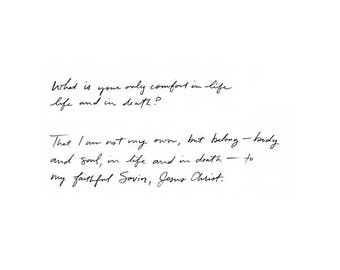 What is your only comfort in life
life and in death?
That I am not my own, but belong – body
and soul, in life and in death – to
my faithful Savior, Jesus Christ.